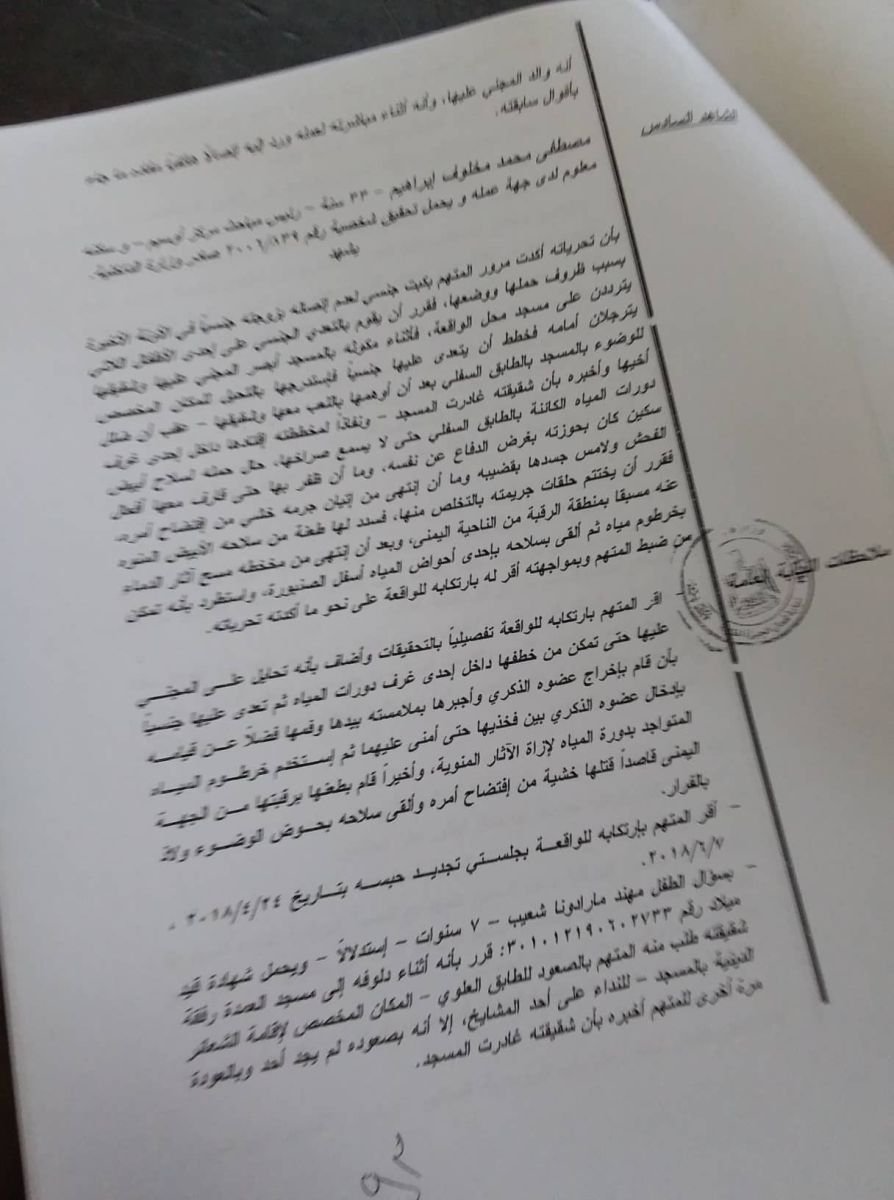 أنه والد المجني عليها، وأنه أثناء مباشرته لعمله ورد إليه إتصالاً هاتفياً
بأقوال سابقته.
الشاهد السادس
مصطفى محمد مخلوف إبراهيم – ٣٣ سنة – رئيس مباحث مركز أوسيم – وسكنه
معلوم لدى جهة عمله و يحمل تحقيق شخصية رقم ٢٠٠٦/١٣٩ صادر وزارة الداخلية.
يشهد
بأن تحرياته أكدت مرور المتهم بكبت جنسي لعدم إتصاله بزوجته جنسياً في الآونة الأخيرة
بسبب ظروف حملها ووضعها، فقرر أن يقوم بالتعدي الجنسي على إحدى الأطفال اللاتي
يترددن على مسجد محل الواقعة، فأثناء مكوثه بالمسجد أبصر المجني عليها وشقيقها
يترجلان أمامه فخطط أن يتعدى عليها جنسياً فإستدرجها بالتحيل للمكان المخصص
للوضوء بالمسجد بالطابق السفلي بعد أن أوهمها باللعب معها وشقيقها – عقب أن ضلل
أخيها وأخبره بأن شقيقته غادرت المسجد – ونفاذاً لمخططته إقتادها داخل إحدى غرف
دورات المياه الكائنة بالطابق السفلي حتى لا يسمع صراخها، حال حمله لسلاح أبيض
سكين كان بحوزته بغرض الدفاع عن نفسه، وما أن ظفر بها حتى قارف معها أفعال
الفحش ولامس جسدها بقضيبه وما أن إنتهى من إتيان جرمه خشي من إفتضاح أمره،
فقرر أن يختتم حلقات جريمته بالتخلص منها، فسدد لها طعنة من سلاحه الأبيض المنوه
عنه مسبقاً بمنطقة الرقبة من الناحية اليمنى، وبعد أن إنتهى من مخططه مسح آثار الدماء
بخرطوم مياه ثم ألقى بسلاحه بإحدى أحواض المياه أسفل الصنبورة، واستطرد بأنه تمكن
من ضبط المتهم وبمواجهته أقر له بإرتكابه للواقعة على نحو ما أكدته تحرياته.
ملاحظات النيابة العامة
- اقر المتهم بارتكابه للواقعة تفصيلياً بالتحقيقات وأضاف بأنه تحايل على المجني
عليها حتى تمكن من خطفها داخل إحدى غرف دورات المياه ثم تعدى عليها جنسياً
بأن قام بإخراج عضوه الذكري وأجبرها بملامسته بيدها وفمها فضلاً عن قيامه
بإدخال عضوه الذكري بين فخذيها حتى أمنى عليهما ثم إستخدم خرطوم المياه
المتواجد بدورة المياه لإزاة الآثار المنوية، وأخيراً قام بطعنها برقبتها من الجهة
اليمنى قاصداً قتلها خشية من إفتضاح أمره وألقى سلاحه بحوض الوضوء ولاذ
بالفرار.
- أقر المتهم بإرتكابه للواقعة بجلستي تجديد حبسه بتاريخ ٢٠١٨/٤/٢٤ ،
٢٠١٨/٦/٧.
- بسؤال الطفل مهند مارادونا شعيب – ٧ سنوات – إستدلالاً – ويحمل شهادة قيد
ميلاد رقم ٣٠١٠١٢١٩٠٦٠٢٧٣٣: قرر بأنه أثناء دلوفه إلى مسجد العمدة رفقة
شقيقته طلب منه المتهم بالصعود للطابق العلوي – المكان المخصص لإقامة الشعائر
الدينية بالمسجد – للنداء على أحد المشايخ، إلا أنه بصعوده لم يجد أحد وبالعودة
مرة أخرى للمتهم أخبره بأن شقيقته غادرت المسجد.